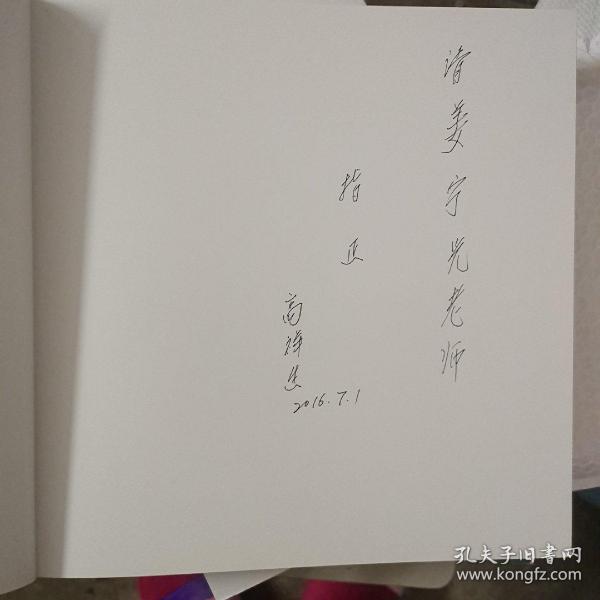 请姜宁光老师
指正
高祥生
2016.7.1
孔夫子旧书网
www.kongfz.com